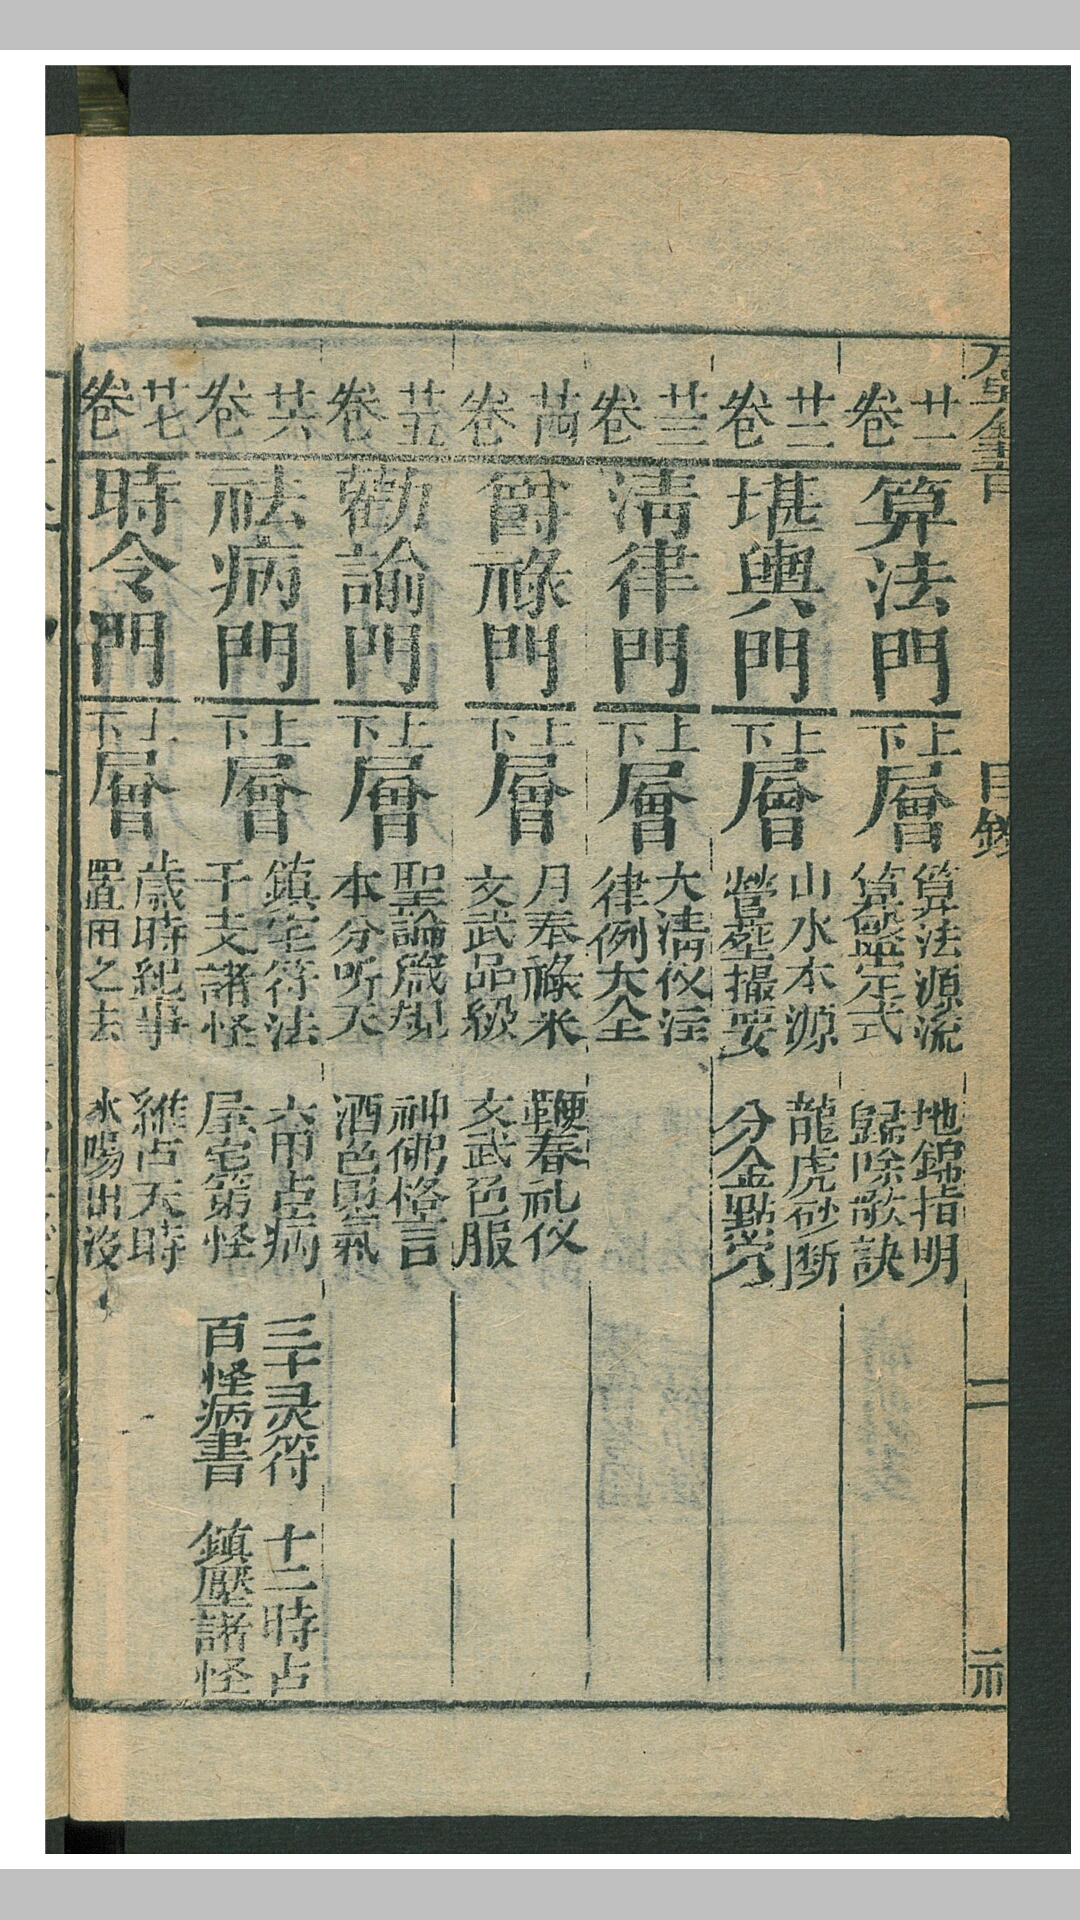 目錄
二
廿一卷
算法門
上層
下層
算法源流 地錦指明
算盤定式 歸除歌訣
廿二卷
堪輿門
上層
下層
山水本源 龍虎砂断
營塟撮要 分金點穴
廿三卷
清律門
上層
下層
大清仪注
律例大全
卷
爵祿門
上層
下層
月奉祿米 鞭春礼仪
文武品級 文武色服
卷
勸諭門
上層
下層
聖諭箴規 神佛格言
本分听天 酒色財氣
卷
祛病門
上層
下層
鎮宅符法 六甲占病 三十灵符 十二時占
干支諸怪 屋宅第怪 百怪病書 鎮壓諸怪
卷
時令門
上層
下層
歳時紀事 維占天時
置田之去 水陽出没